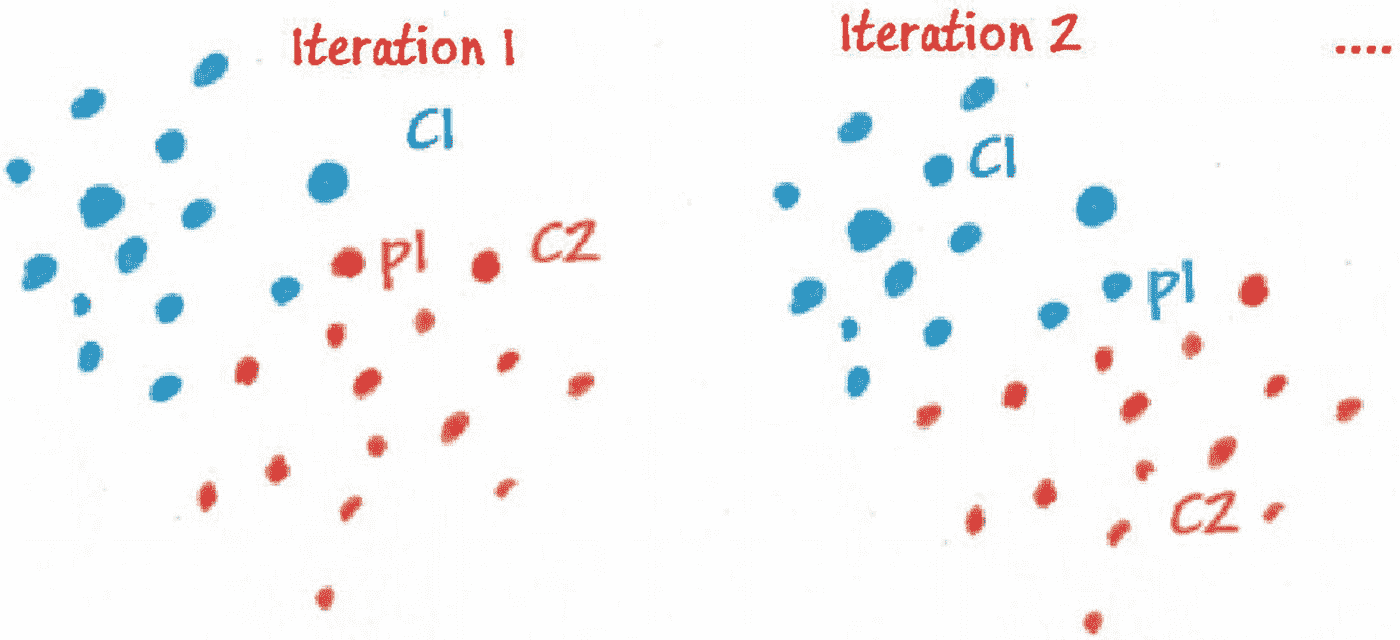 Iteration 1
C1
p1
C2
Iteration 2
....
C1
p1
C2